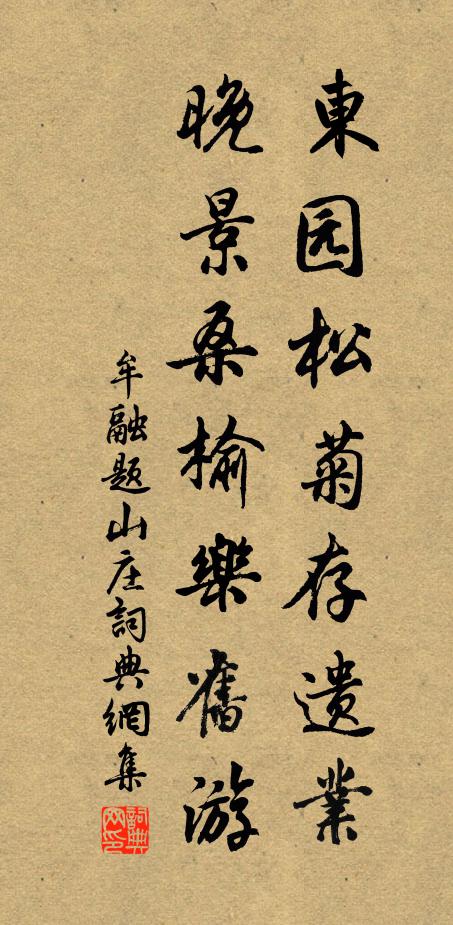 東园松菊存遗業
晚景桑榆樂舊游
牟融题山庄詞典網集
詞典网印